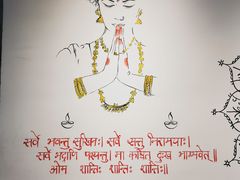 सर्वे भवन्तु सुखिनः। सर्वे सन्तु निरामयाः।
सर्वे भद्राणि पश्यन्तु। मा कश्चित् दुःख भाग्भवेत्॥
ओम शान्तिः शान्तिः शान्तिः॥